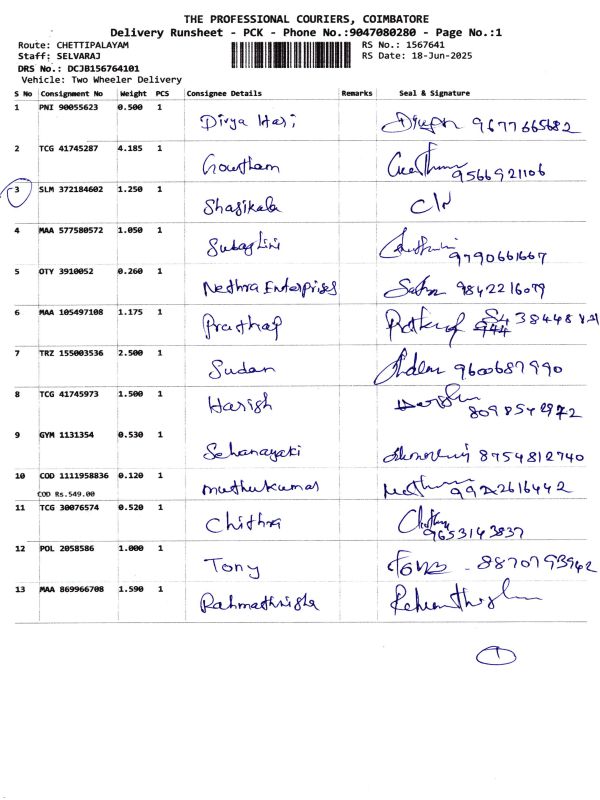 THE PROFESSIONAL COURIERS, COIMBATORE
Delivery Runsheet - PCK - Phone No.:9047080280 - Page No.:1
Route: CHETTIPALAYAM RS No.: 1567641
Staff: SELVARAJ RS Date: 18-Jun-2025
DRS No.: DCJB156764101
Vehicle: Two Wheeler Delivery
S No Consignment No Weight PCS Consignee Details Remarks Seal & Signature
1 PNI 90055623 0.500 1 Divya Hari 9677665682
2 TCG 41745287 4.185 1 Gowtham 9566921106
3 SLM 372184602 1.250 1 Shasikala
4 MAA 577580572 1.050 1 Subaglini 9790661667
5 OTY 3910052 0.260 1 Nethra Enterprises 9842216079
6 MAA 105497108 1.175 1 Prathap
7 TRZ 155003536 2.500 1 Sudan 9600687990
8 TCG 41745973 1.500 1 Harish 8098542972
9 GYM 1131354 0.530 1 Sehanayaki 8754812740
10 COD 1111958836 0.120 1 Muthukumar
COD Rs.549.00
11 TCG 30076574 0.520 1 Chithra 9653143837
12 POL 2058586 1.000 1 Tony 8870793942
13 MAA 869966708 1.590 1 Rahmathnisha
1